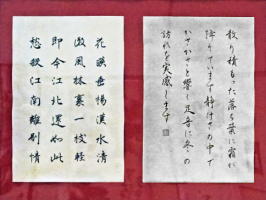 花映垂楊漢水清
微風林裏一枝軽
即今江北還如此
愁殺江南離別情
散り積もった落ち葉に霜が
降りています静けさの中で
かさかさと響く足音に冬の
訪れを実感します